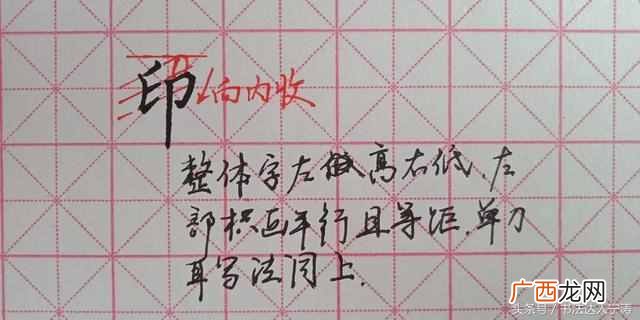 印 向内收
整体字左高右低,左
部横画平行且等距,单刀
耳写法同上.
广西龙网
头条号/书法达人于涛